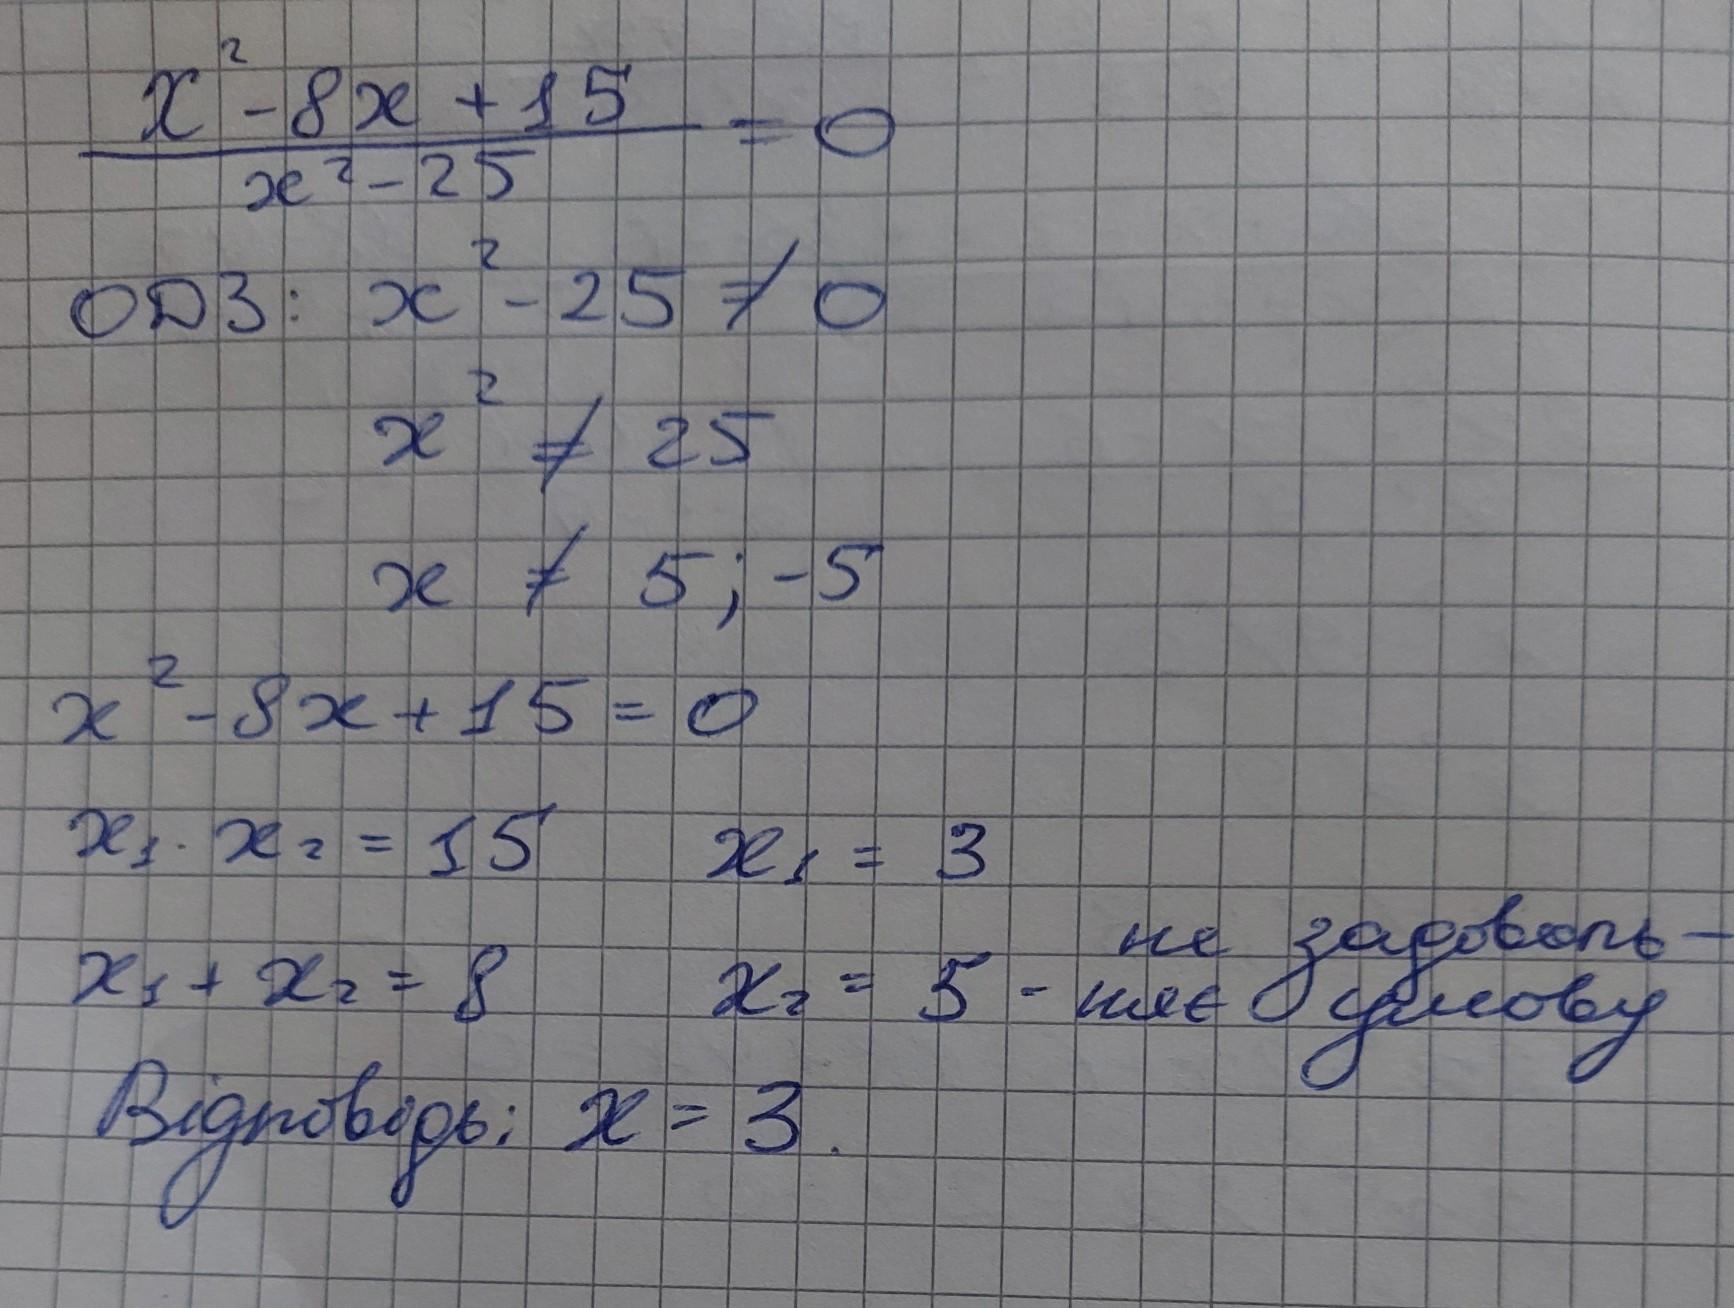 x² - 8x + 15
/ x² - 25 = 0
ОДЗ: x² - 25 ≠ 0
x² ≠ 25
x ≠ 5; -5
x² - 8x + 15 = 0
x₁ · x₂ = 15 x₁ = 3
x₁ + x₂ = 8 x₂ = 5 - не задоволь-
няє умову
Відповідь: x = 3.